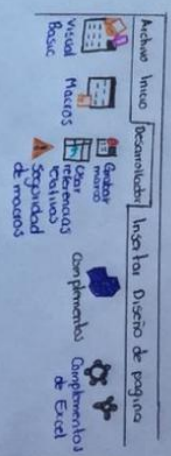 Archivo Inicio Desarrollador Insertar Diseño de pagina
Visual
Basic
Macros
Grabar
macro
Usar
referencias
relativas
Seguridad
de macros
Complementos
Complementos
de Excel